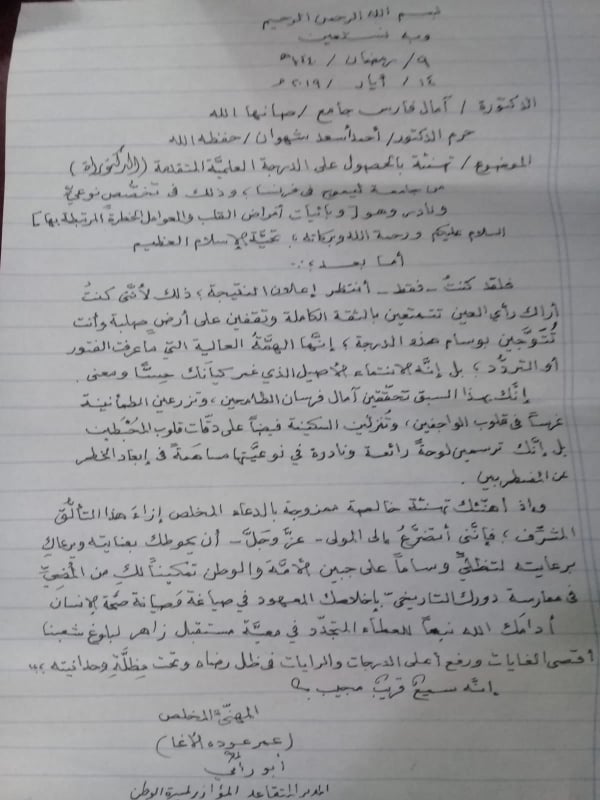 بسم الله الرحمن الرحيم
وبه نستعين
٩/ رمضان / ١٤٤٠هـ
١٤/ أيار / ٢٠١٩م
الدكتورة / آمال فارس جامع / صانها الله
حرم الدكتور/ أحمد أسعد شهوان / حفظه الله
الموضوع / تهنئة بالحصول على الدرجة العلميَّة المتقدمة (الدكتوراة)
من جامعة ليموج في فرنسا، وذلك في تخصّص نوعيٍّ
ونادر وهو [وبائيات أمراض القلب والعوامل الخطرة المرتبطة بها]
السلام عليكم ورحمة الله وبركاته، تحيَّة الإسلام العظيم
أما بعد؛..
فلقد كنتُ - فقط - أنتظر إعلان النتيجة؛ ذلك لأنَّني كنتُ
أراك رأي العين تتمتعين بالثقة الكاملة وتقفين على أرضٍ صلبة وأنت
تُتَوَّجين بوسام هذه الدرجة، إنَّها الهمَّة العالية التي ما عرفت الفتور
أو التردُّد، بل إنَّه الانتماء الأصيل الذي غمر كيانَك حِسًّا ومعنى.
إنَّك بهذا السبق تحقّقين آمال فرسان الطامحين، وتزرعين الطمأنينة
غرساً في قلوب الواجفين، وتُنزلين السكينة فيضاً على دقّات قلوب المُحْبَطين
بل إنَّك ترسمين لوحةً رائعة ونادرة في نوعيَّتها مساهمةً في إبعاد الخطر
عن المضطربين.
وإذ أهنّئك تهنئة خالصة ممزوجة بالدعاء المخلص إزاءَ هذا التألُّق
المشرّف، فإنَّني أتضرَّعُ إلى المولى - عزَّ وجَلَّ - أن يحوطك بعنايته ويرعاكِ
برعايته لتظلّيْ وساماً على جبين الأمَّة والوطن تمكيناً لكِ من المُضِيِّ
في ممارسة دورك التاريخيّ بإخلاصك المعهود في صياغة وصيانة صحّة الإنسان
أدامَك الله نبعاً للعطاء المتجدّد في معيَّة مستقبل زاهر لبلوغ شعبنا
أقصى الغايات ورفع أعلى الدرجات والرايات في ظل رضاه وتحت مِظلَّةِ وحدانيته،،
إنَّه سميعٌ قريبٌ مجيب
المهنّئ المخلص
(عمر عوده الأغا)
أبو رامي
المدير المتقاعد المؤازر لمسيرة الوطن